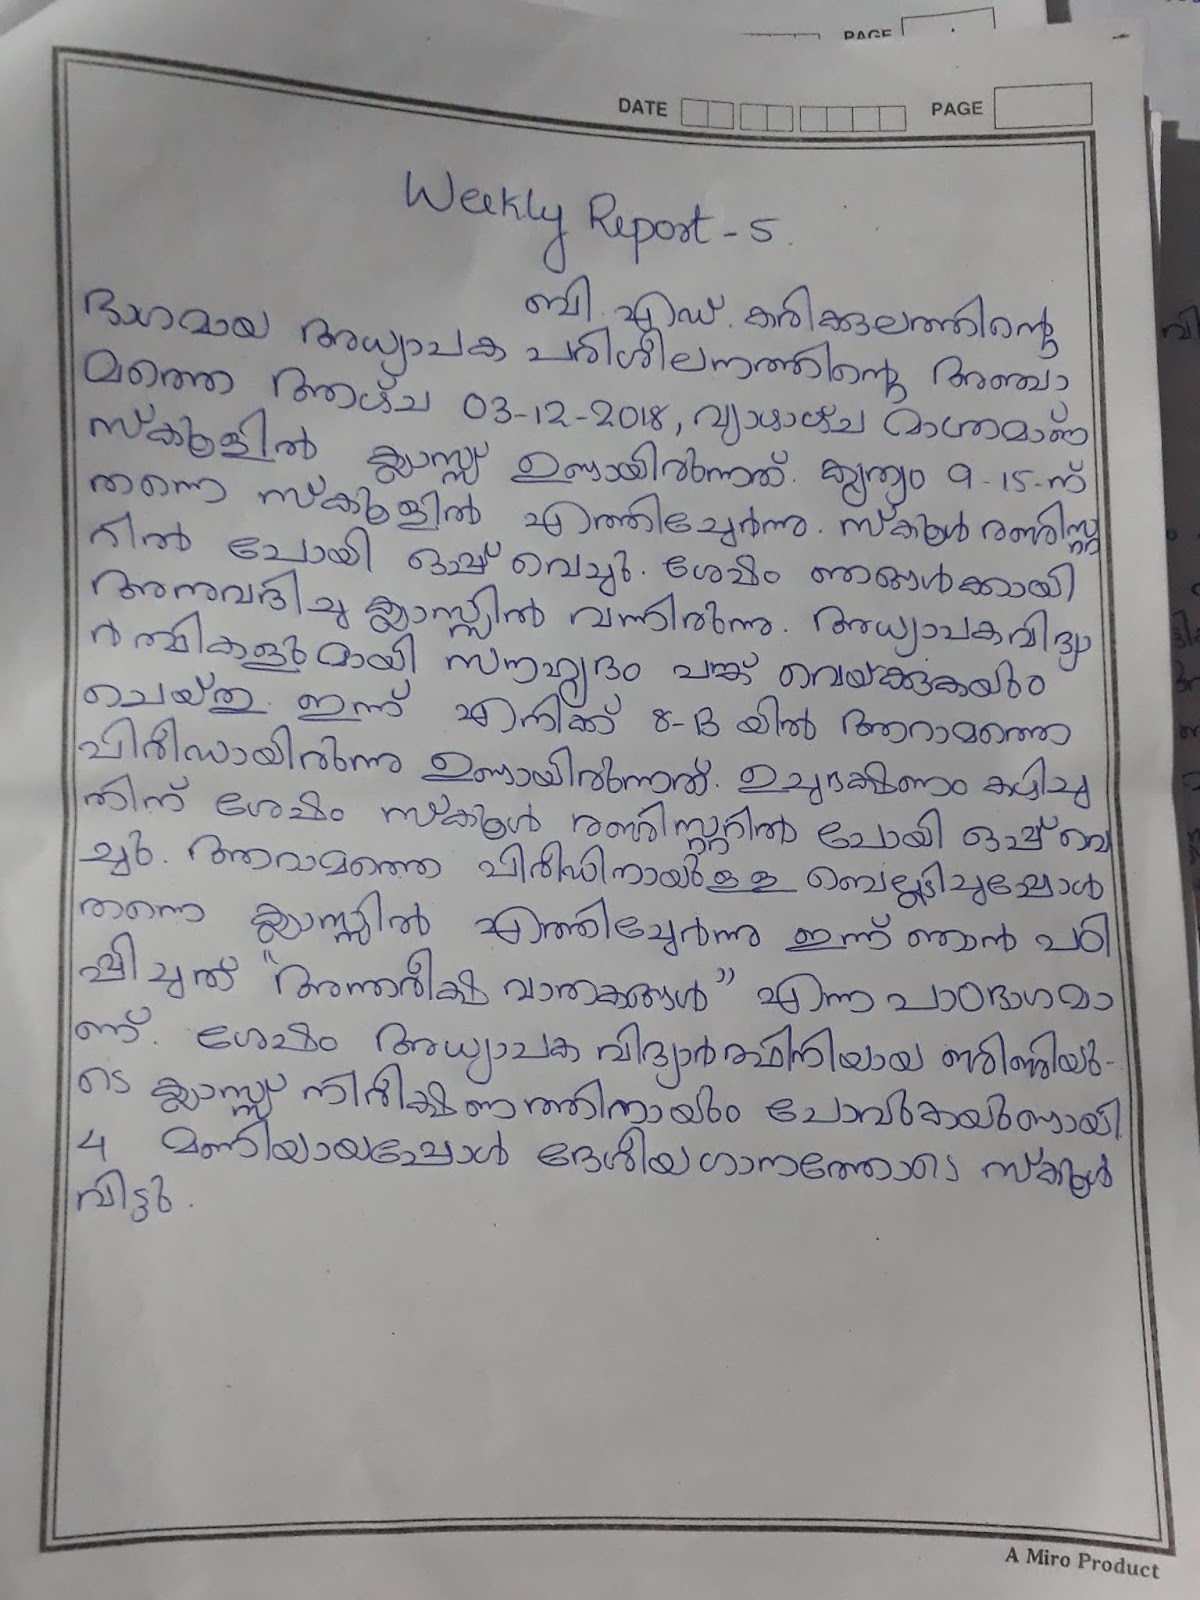 PAGE
DATE PAGE
Weekly Report - 5.
ബി. എഡ്. കരിക്കുലത്തിന്റെ
ഭാഗമായ അധ്യാപക പരിശീലനത്തിന്റെ അഞ്ചാ
മത്തെ ആഴ്ച 03-12-2018, വ്യാഴാഴ്ച മാത്രമാണ്
സ്കൂളിൽ ക്ലാസ്സ് ഉണ്ടായിരുന്നത്. കൃത്യം 9-15-ന്
തന്നെ സ്കൂളിൽ എത്തിച്ചേർന്നു. സ്കൂൾ രജിസ്റ്റ
റിൽ പോയി ഒപ്പ് വെച്ചു. ശേഷം ഞങ്ങൾക്കായി
അനുവദിച്ച ക്ലാസ്സിൽ വന്നിരുന്നു. അധ്യാപകവിദ്യാ
ർത്ഥികളുമായി സൗഹൃദം പങ്ക് വെയ്ക്കുകയും
ചെയ്തു. ഇന്ന് എനിക്ക് 8-B യിൽ ആറാമത്തെ
പിരീഡായിരുന്നു ഉണ്ടായിരുന്നത്. ഉച്ചഭക്ഷണം കഴിച്ച
തിന് ശേഷം സ്കൂൾ രജിസ്റ്ററിൽ പോയി ഒപ്പ് വെ
ച്ചു. ആറാമത്തെ പിരീഡിനായുള്ള ബെല്ലടിച്ചപ്പോൾ
തന്നെ ക്ലാസ്സിൽ എത്തിച്ചേർന്നു ഇന്ന് ഞാൻ പഠി
പ്പിച്ചത് "അന്തരീക്ഷ വാതകങ്ങൾ" എന്ന പാഠഭാഗമാ
ണ്. ശേഷം അധ്യാപക വിദ്യാർത്ഥിനിയായ ജിൻജിയു-
ടെ ക്ലാസ്സ് നിരീക്ഷണത്തിനായും പോവുകയുണ്ടായി.
4 മണിയായപ്പോൾ ദേശീയഗാനത്തോടെ സ്കൂൾ
വിട്ടു.
A Miro Product